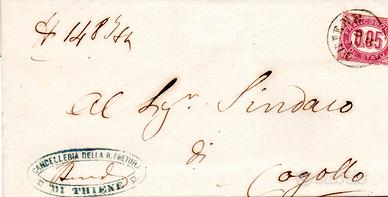 FRANCOBOLLO
0.05
DI STATO
Al Sig.r Sindaco
di
Cogollo
CANCELLERIA DELLA R. PRETURA
DI THIENE